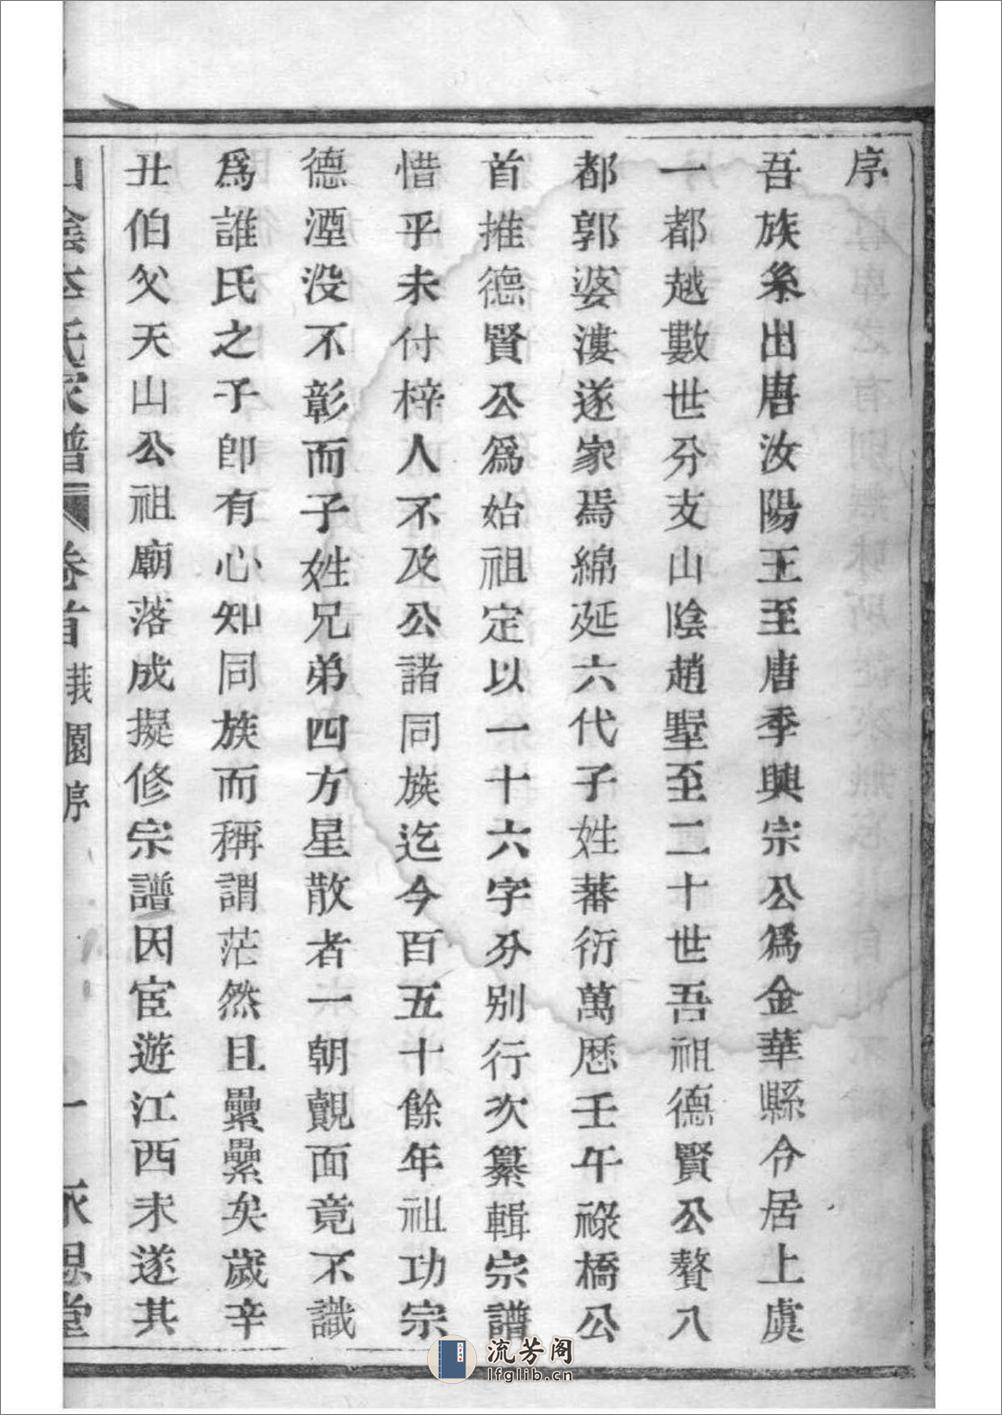 序
吾族系出唐汝陽王至唐季興宗公爲金華縣令居上虞
一都越數世分支山陰趙墅至二十世吾祖德賢公贅八
都郭婆漊遂家焉綿延六代子姓蕃衍萬厯壬午祿橋公
首推德賢公爲始祖定以一十六字分别行次纂輯宗譜
惜乎未付梓人不及公諸同族迄今百五十餘年祖功宗
德湮没不彰而子姓兄弟四方星散者一朝覿面竟不識
爲誰氏之子卽有心知同族而稱謂茫然且纍纍矣歲辛
丑伯父天山公祖廟落成擬修宗譜因宦遊江西未遂其
山陰李氏家譜 卷首 莪園序 一 永思堂
流芳阁
lfglib.cn